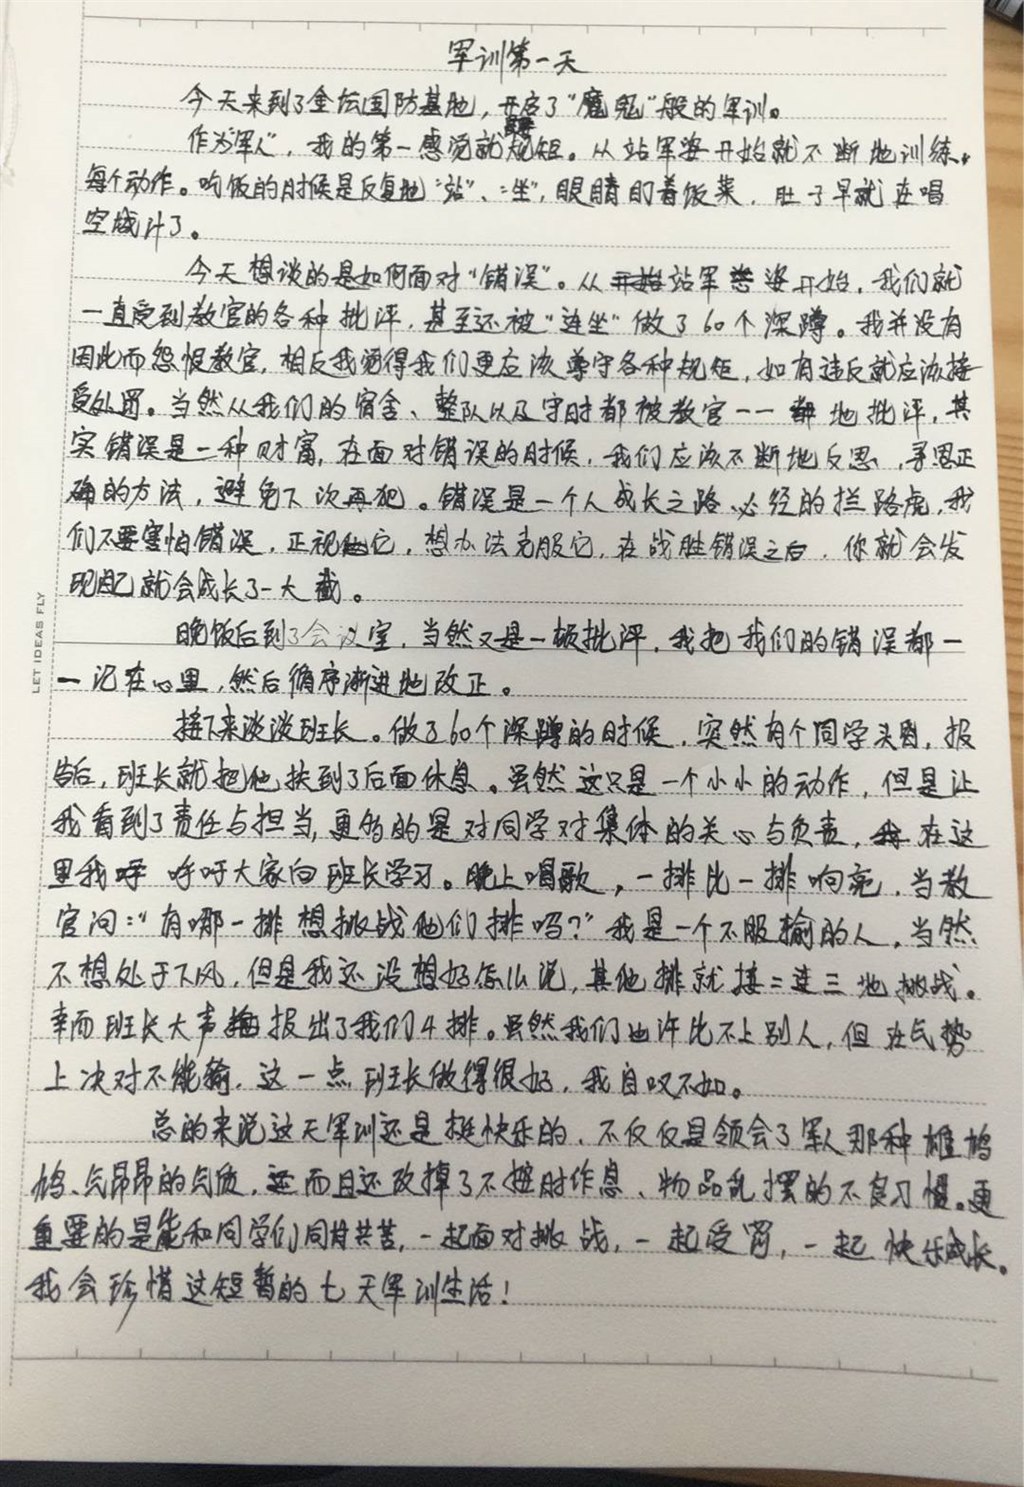 军训第一天
今天来到了金坛国防基地，开启了“魔鬼”般的军训。
作为“军人”，我的第一感觉就是规矩。从站军姿开始就不断地训练
每个动作。吃饭的时候是反复地“站”、“坐”，眼睛盯着饭菜，肚子早就在唱
空城计了。
今天想谈的是如何面对“错误”。从站军姿开始，我们就
一直受到教官的各种批评，甚至还被“连坐”做了60个深蹲。我并没有
因此而怨恨教官，相反我觉得我们更应该遵守各种规矩，如有违反就应该接
受处罚。当然从我们的宿舍、整队以及守时都被教官一一地批评，其
实错误是一种财富，在面对错误的时候，我们应该不断地反思，寻思正
确的方法，避免下次再犯。错误是一个人成长之路必经的拦路虎，我
们不要害怕错误，正视它，想办法克服它，在战胜错误之后，你就会发
现自己就会成长了一大截。
LET IDEAS FLY
晚饭后到了会议室，当然又是一顿批评，我把我们的错误都一
一记在心里，然后循序渐进地改正。
接下来谈谈班长。做了60个深蹲的时候，突然有个同学头晕，报
告后，班长就把他扶到了后面休息。虽然这只是一个小小的动作，但是让
我看到了责任与担当，更多的是对同学对集体的关心与负责，在这
里我呼吁大家向班长学习。晚上唱歌，一排比一排响亮，当教
官问：“有哪一排想挑战他们排吗？”我是一个不服输的人，当然
不想处于下风，但是我还没想好怎么说，其他排就接二连三地挑战。
幸而班长大声报出了我们4排。虽然我们也许比不上别人，但在气势
上决对不能输，这一点班长做得很好，我自叹不如。
总的来说这天军训还是挺快乐的，不仅仅是领会了军人那种雄鸠
鸠、气昂昂的气质，而且还改掉了不按时作息、物品乱摆的不良习惯。更
重要的是能和同学们同甘共苦，一起面对挑战，一起受罚，一起快乐成长。
我会珍惜这短暂的七天军训生活！